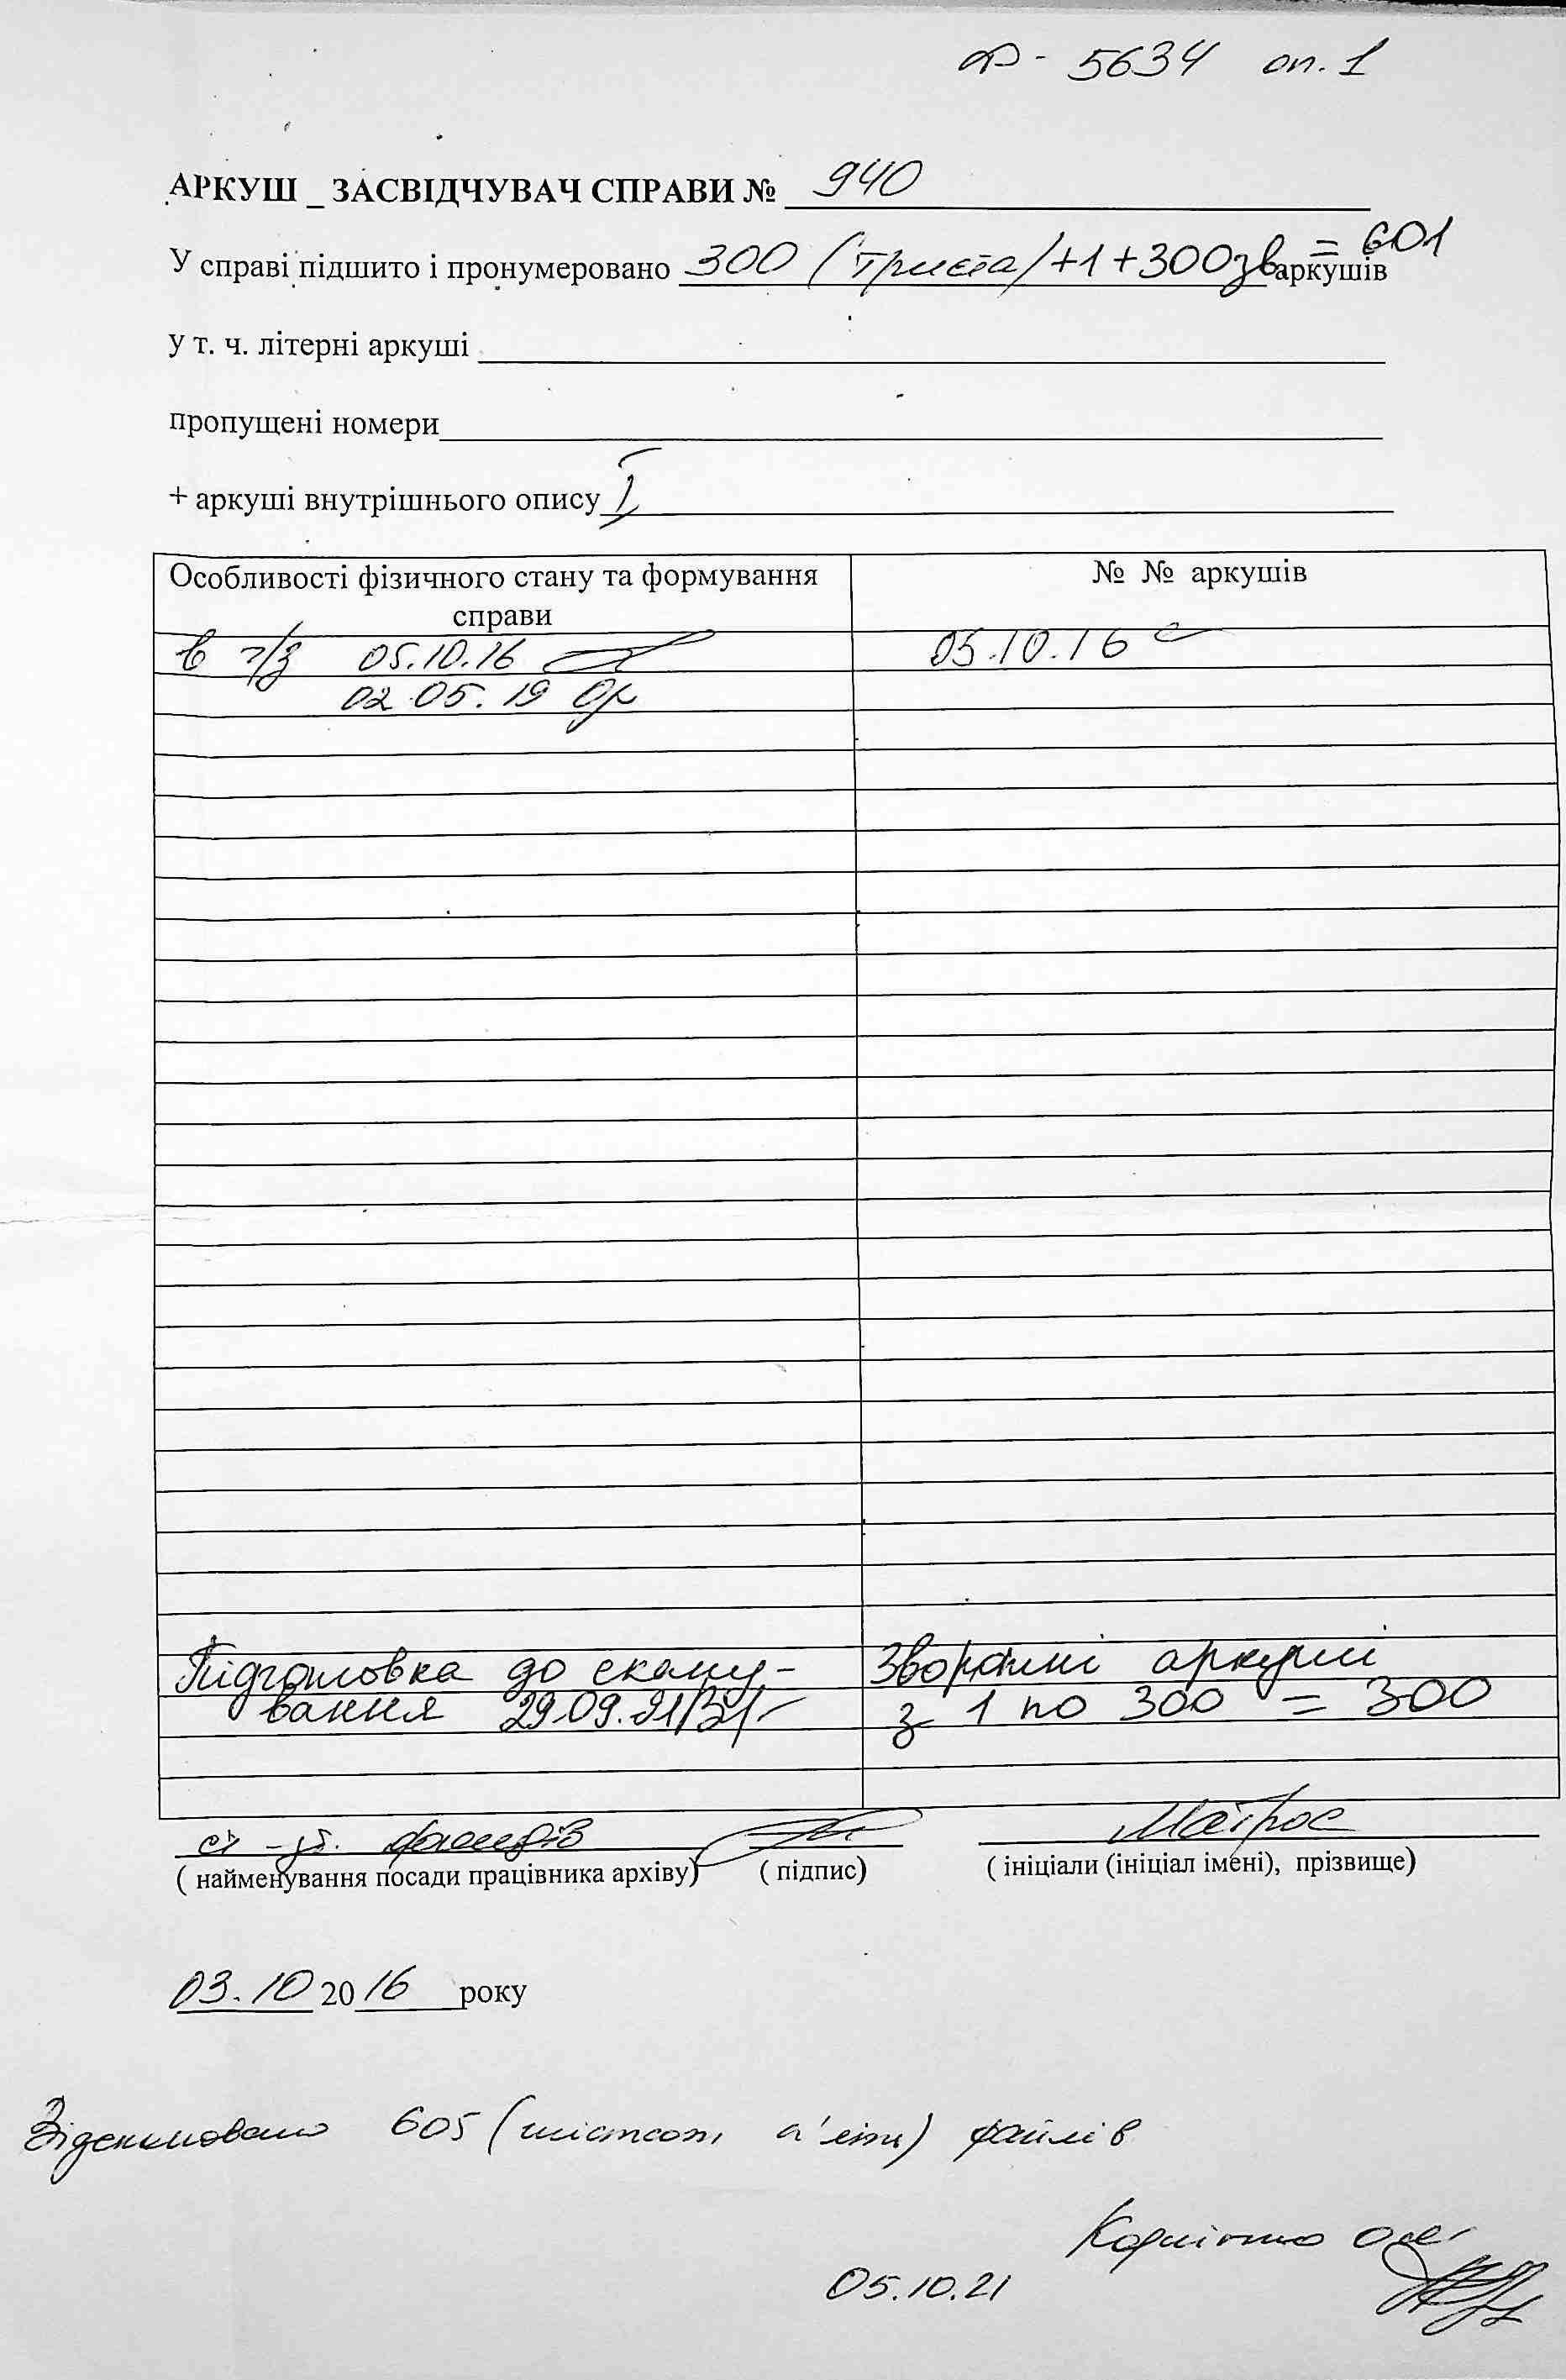 Ф - 5634 оп. 1
АРКУШ _ ЗАСВІДЧУВАЧ СПРАВИ № 940
У справі підшито і пронумеровано 300 (триста) +1 +300зв = 601 аркушів
у т. ч. літерні аркуші
пропущені номери
+ аркуші внутрішнього опису I
Особливості фізичного стану та формування справи
№ № аркушів
в г/з 05.10.16
05.10.16
02.05.19
Підготовка до скану-
Зворотні аркуші
вання 29.09.21
з 1 по 300 = 300
фондів Матрос
( найменування посади працівника архіву) ( підпис) ( ініціали (ініціал імені), прізвище)
03.10 2016 року
Відскановано 605 (шістсот п'ять) файлів
05.10.21